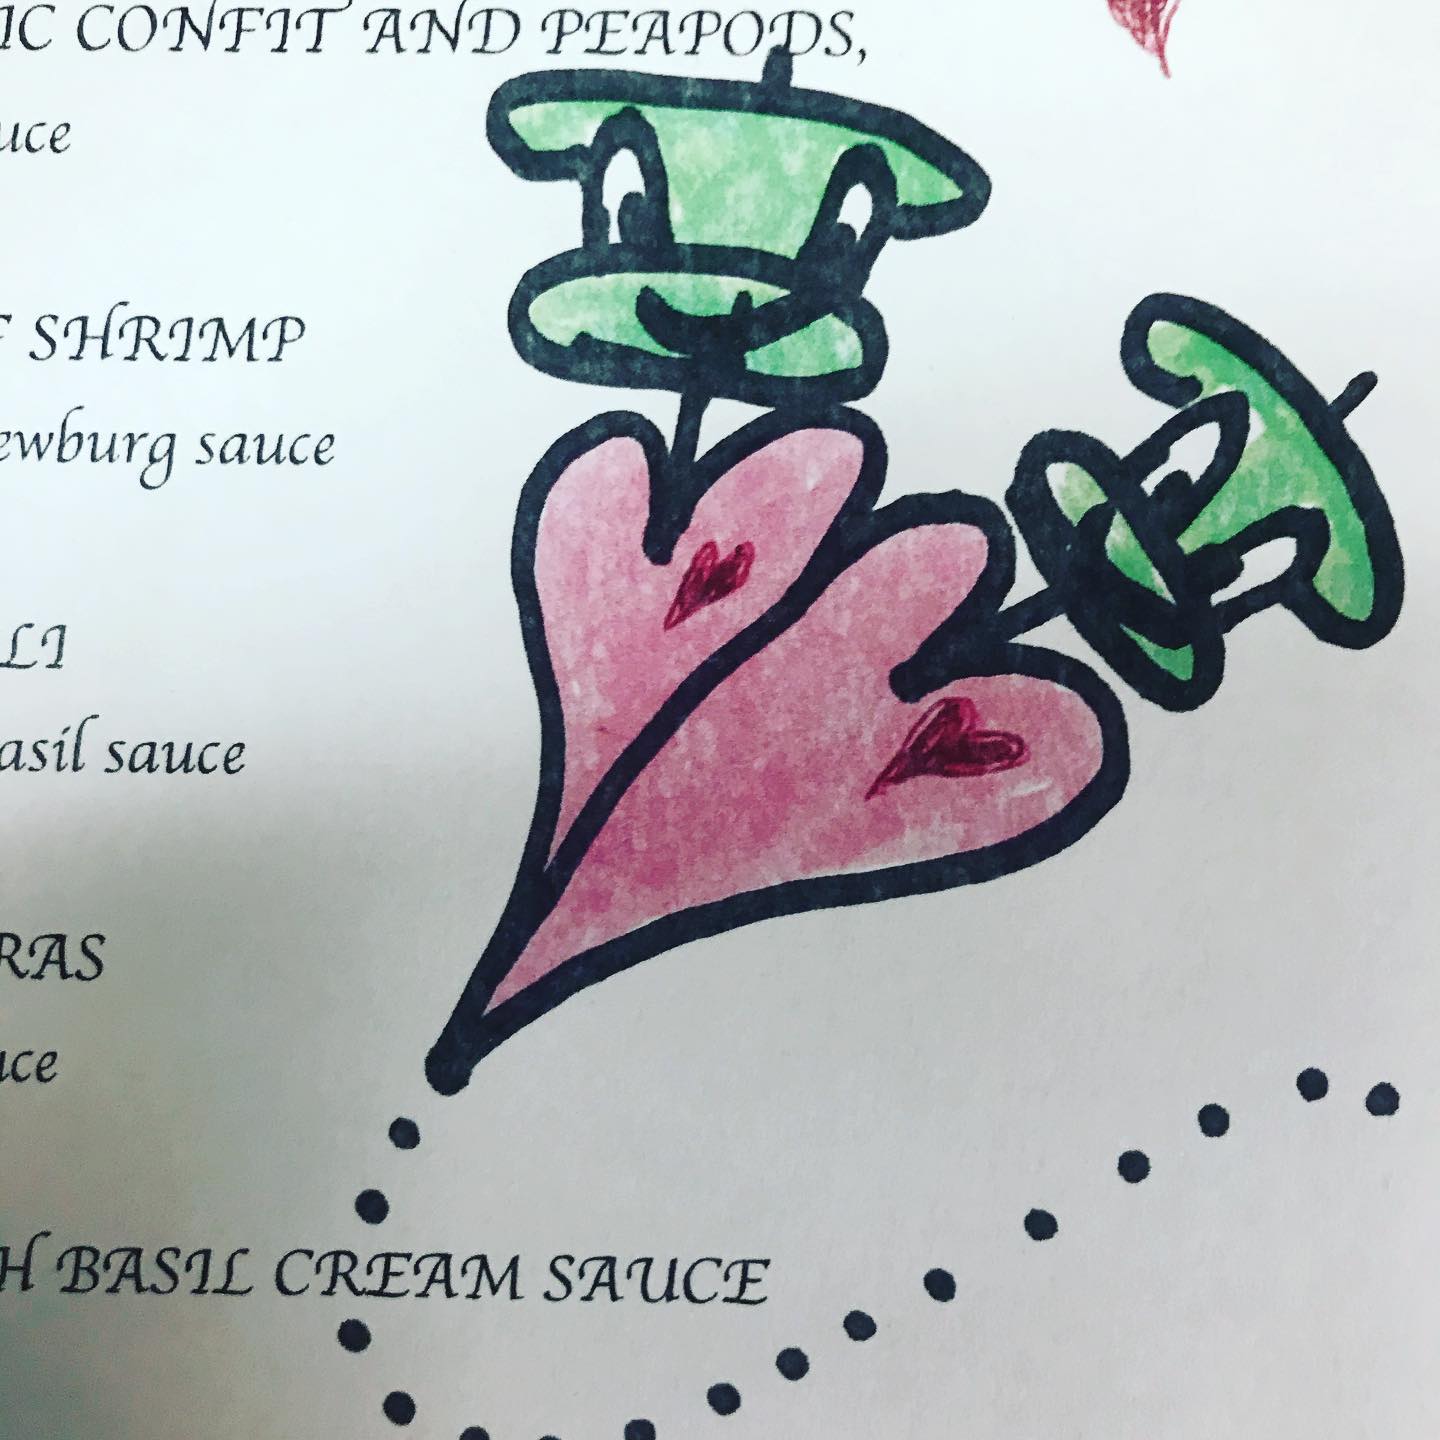 IC CONFIT AND PEAPODS,
uce
F SHRIMP
ewburg sauce
LI
asil sauce
RAS
uce
H BASIL CREAM SAUCE